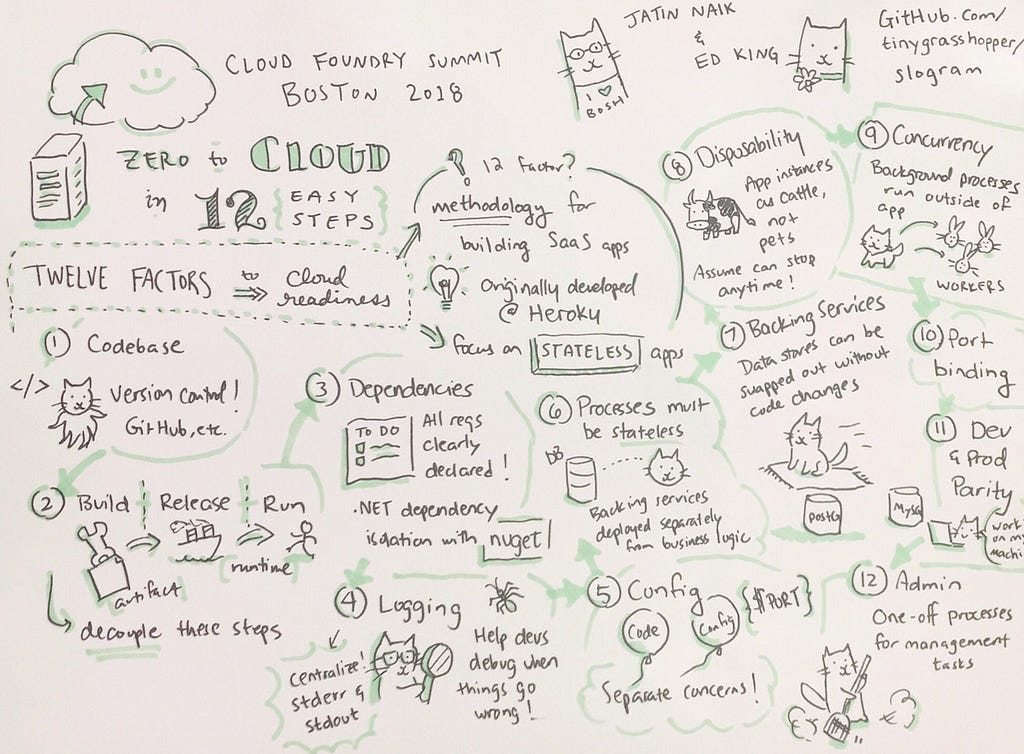 CLOUD FOUNDRY SUMMIT
BOSTON 2018
JATIN NAIK
&
ED KING
I ♡
BOSH
GitHub.com/
tinygrasshopper/
slogram
ZERO to CLOUD
in 12 {EASY
STEPS}
TWELVE FACTORS to ⇒ Cloud
readiness
? 12 Factor?
methodology for
building SaaS apps
Originally developed
@ Heroku
focus on STATELESS apps
① Codebase
</>
Version control!
GitHub, etc.
② Build Release Run
artifact
runtime
decouple these steps
③ Dependencies
TO DO
All reqs
clearly
declared!
.NET dependency
isolation with nuget
④ Logging
centralize!
stderr &
stdout
Help devs
debug when
things go
wrong!
⑤ Config
{$PORT}
Code
Config
Separate concerns!
⑥ Processes must
be stateless
DB
Backing services
deployed separately
from business logic
⑦ Backing Services
Data stores can be
swapped out without
code changes
PostG
MySQ
⑧ Disposability
App instances
as cattle,
not
pets
Assume can stop
anytime!
⑨ Concurrency
Background processes
run outside of
app
WORKERS
⑩ Port
binding
⑪ Dev
& Prod
Parity
work
on my
machi
⑫ Admin
One-off processes
for management
tasks